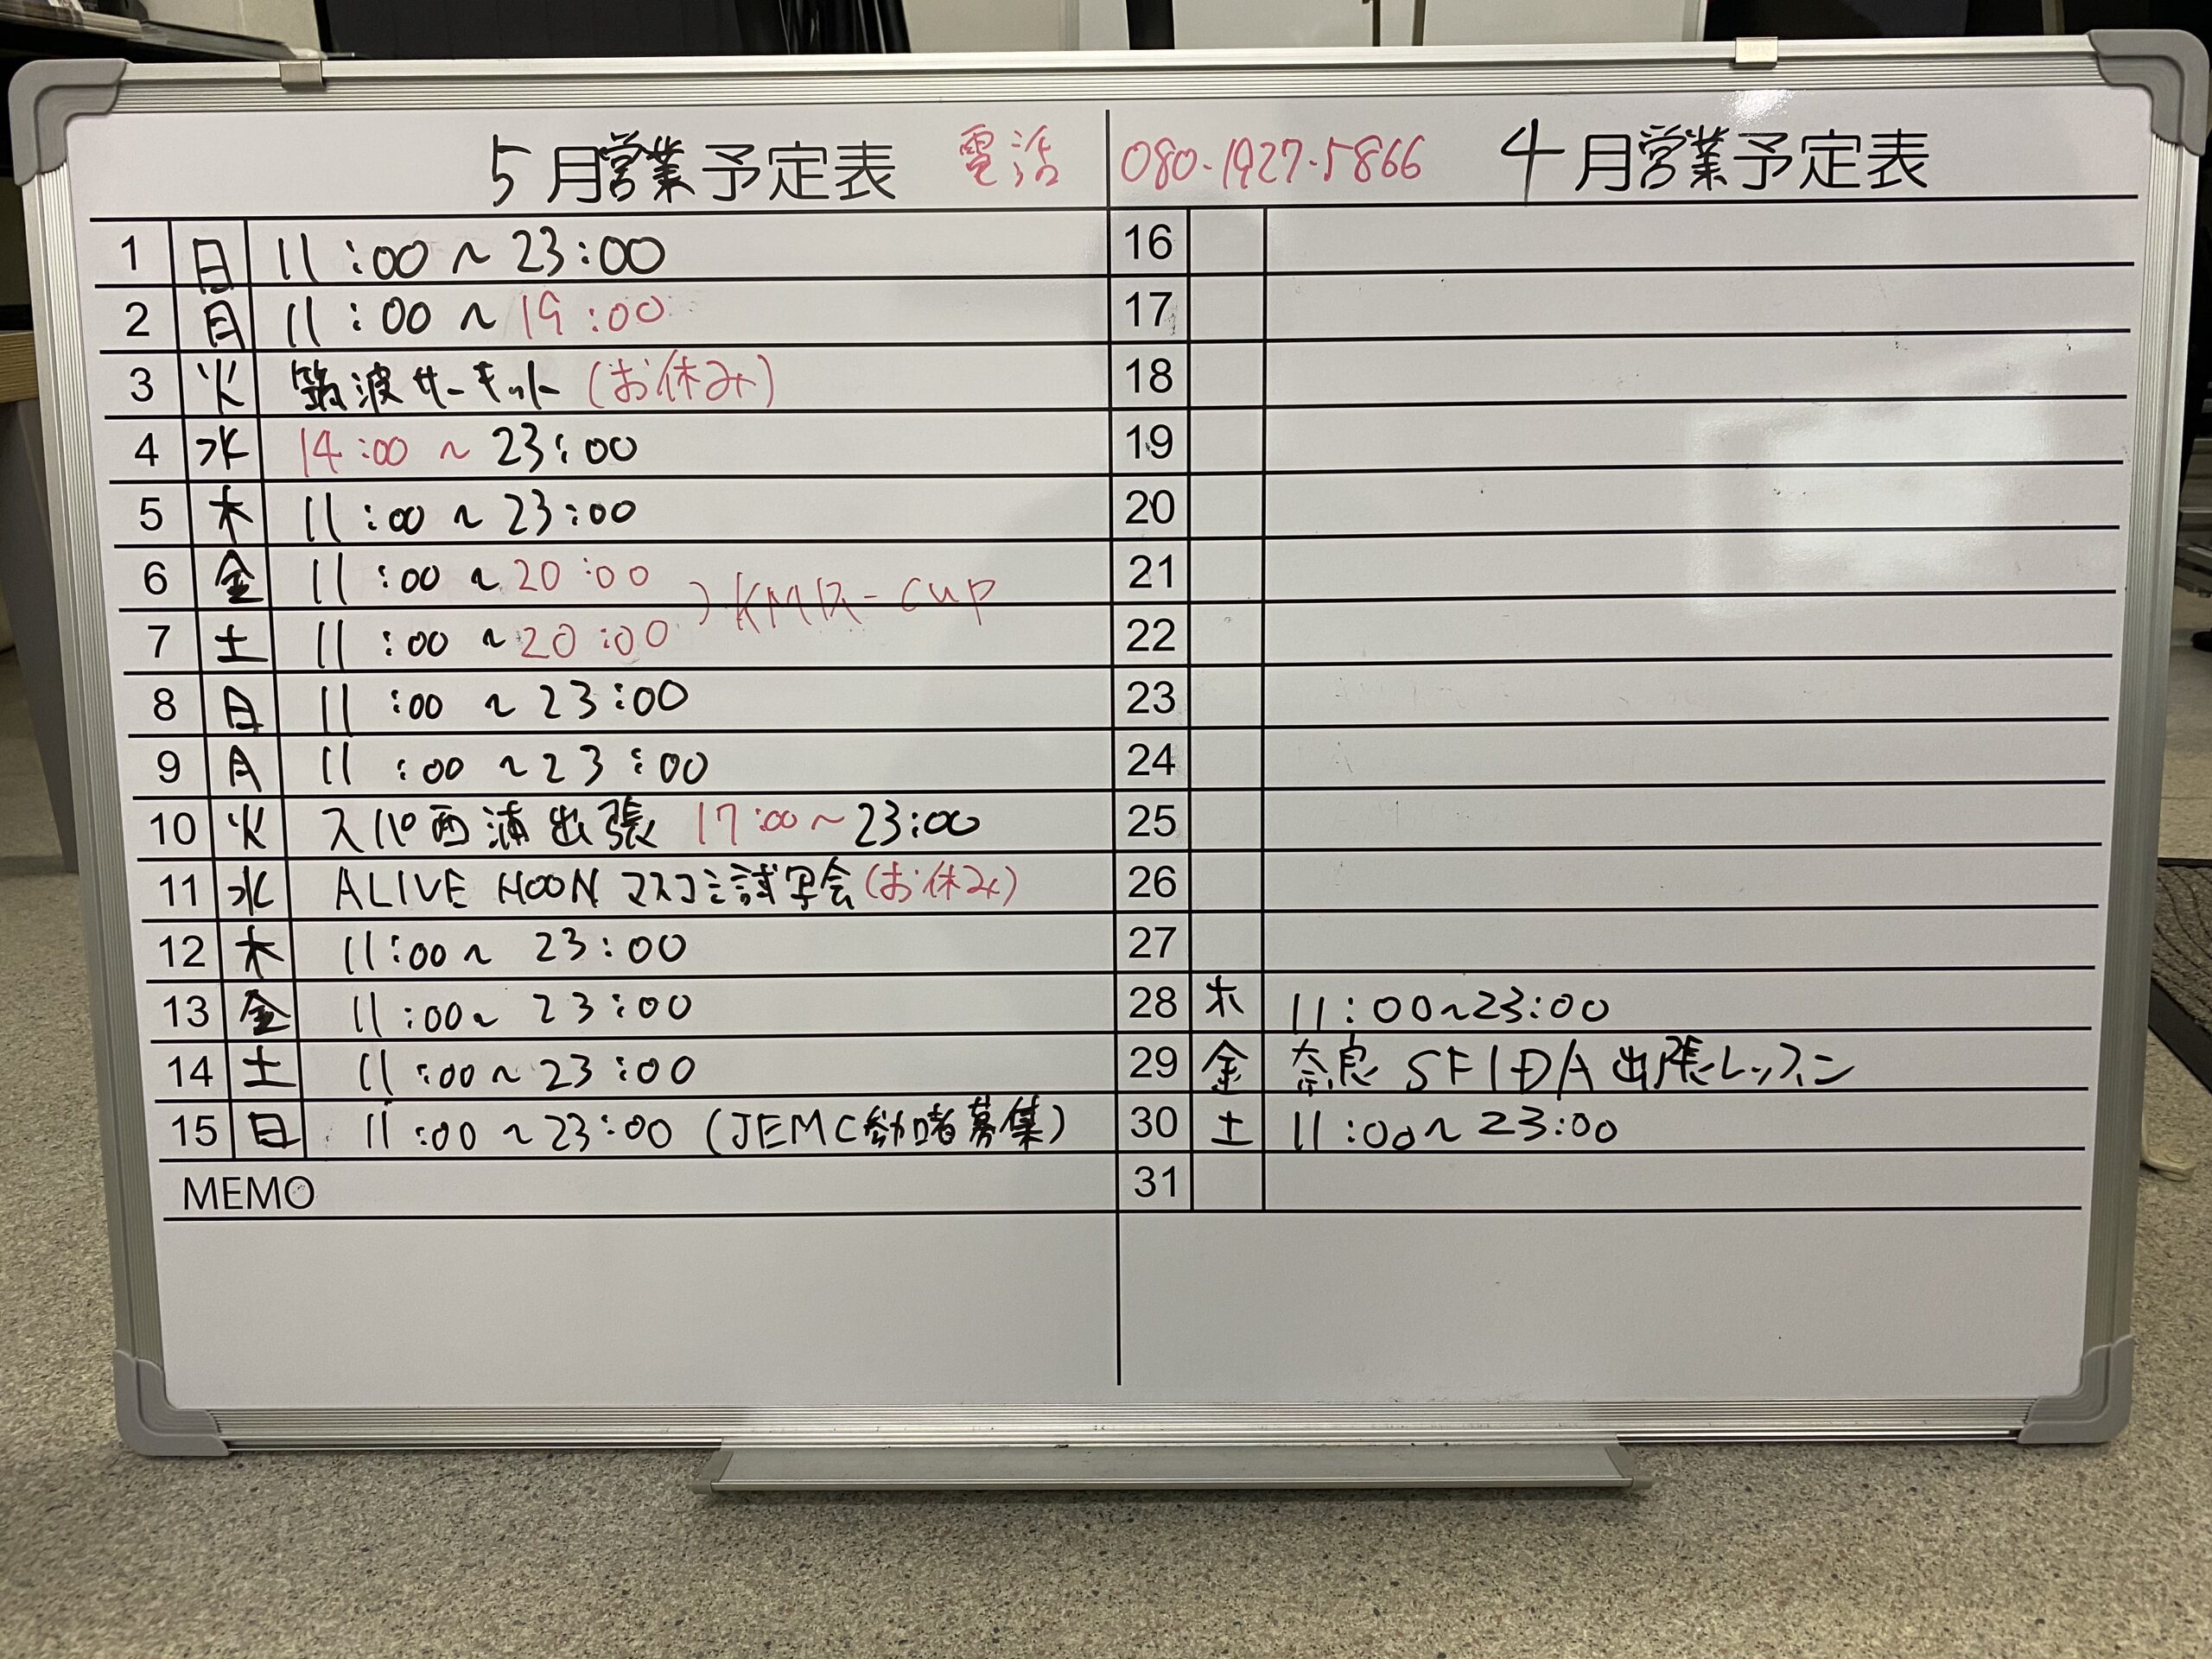 5月営業予定表 電話 080-1927-5866
1 日 11:00~23:00
2 月 11:00~19:00
3 火 筑波サーキット(お休み)
4 水 14:00~23:00
5 木 11:00~23:00
6 金 11:00~20:00
KMR-CUP
7 土 11:00~20:00
8 日 11:00~23:00
9 月 11:00~23:00
10 火 スパ西浦出張 17:00~23:00
11 水 ALIVE HOON マスコミ試写会(お休み)
12 木 11:00~23:00
13 金 11:00~23:00
14 土 11:00~23:00
15 日 11:00~23:00 (JEMC参加者募集)
MEMO
4月営業予定表
16
17
18
19
20
21
22
23
24
25
26
27
28 木 11:00~23:00
29 金 奈良SFIDA出張レッスン
30 土 11:00~23:00
31